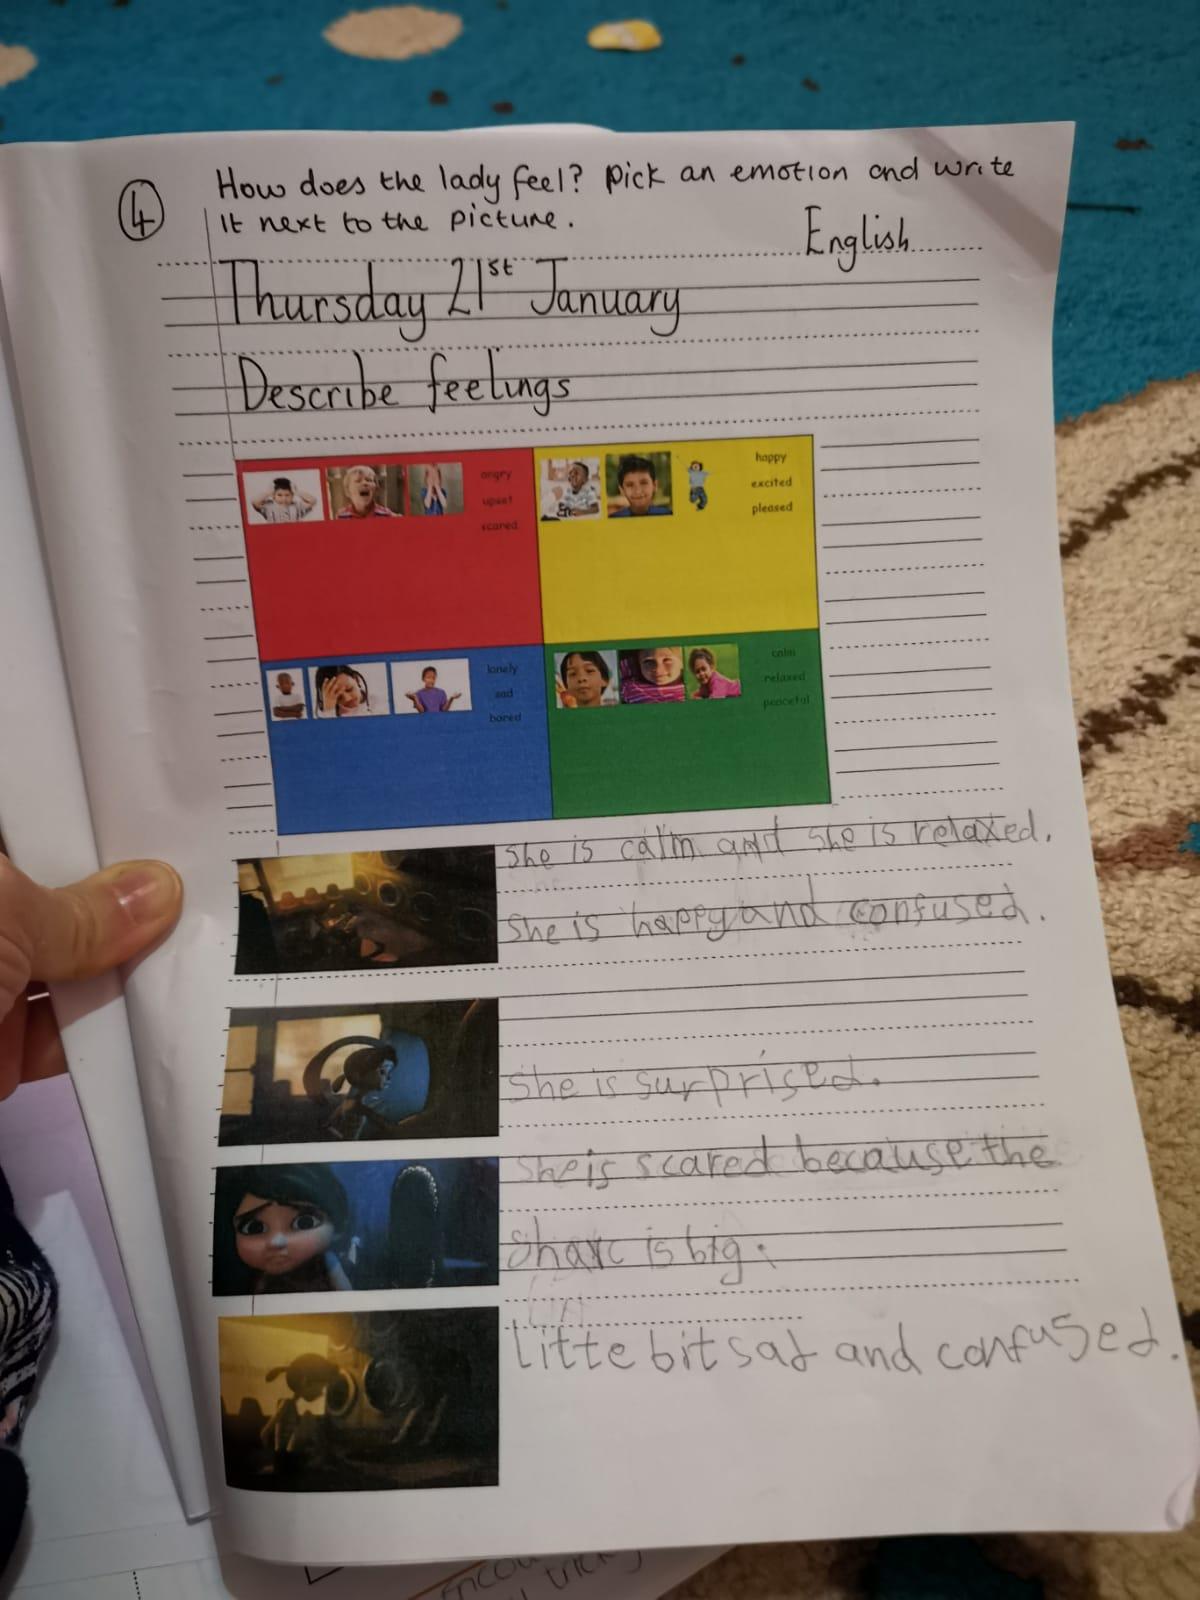 4
How does the lady feel? Pick an emotion and write
it next to the picture.
English
Thursday 21st January
Describe feelings
angry
upset
scared
happy
excited
pleased
lonely
sad
bored
calm
relaxed
peaceful
She is calm and she is relaxed.
She is happy and confused.
She is surprised.
She is scared because the
Sharc is big.
Litte bit sad and confused.